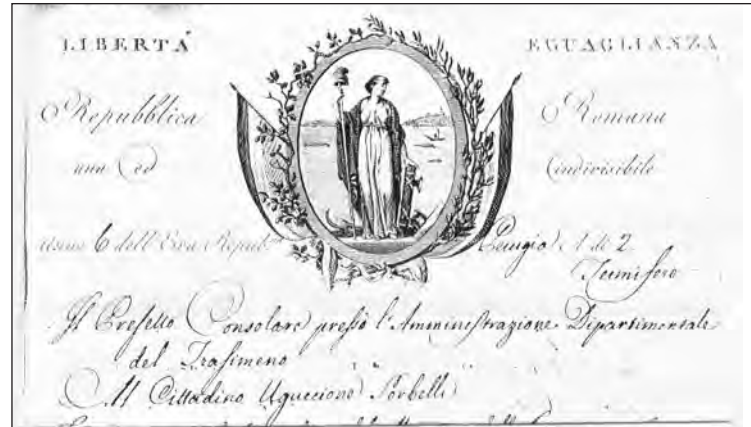 LIBERTÁ EGUAGLIANZA
Repubblica Romana
una ed indivisibile
anno 6 dell'Era Repub.na Perugia li 2
Termifero
Il Prefetto Consolare presso l'Amministrazione Dipartimentale
del Trasimeno
Al Cittadino Uguccione Sorbelli